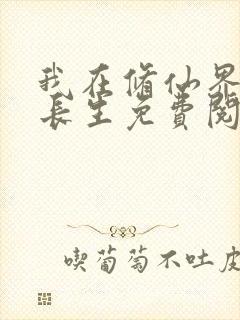 我在修仙界
长生免費閱
喫葡萄不吐皮